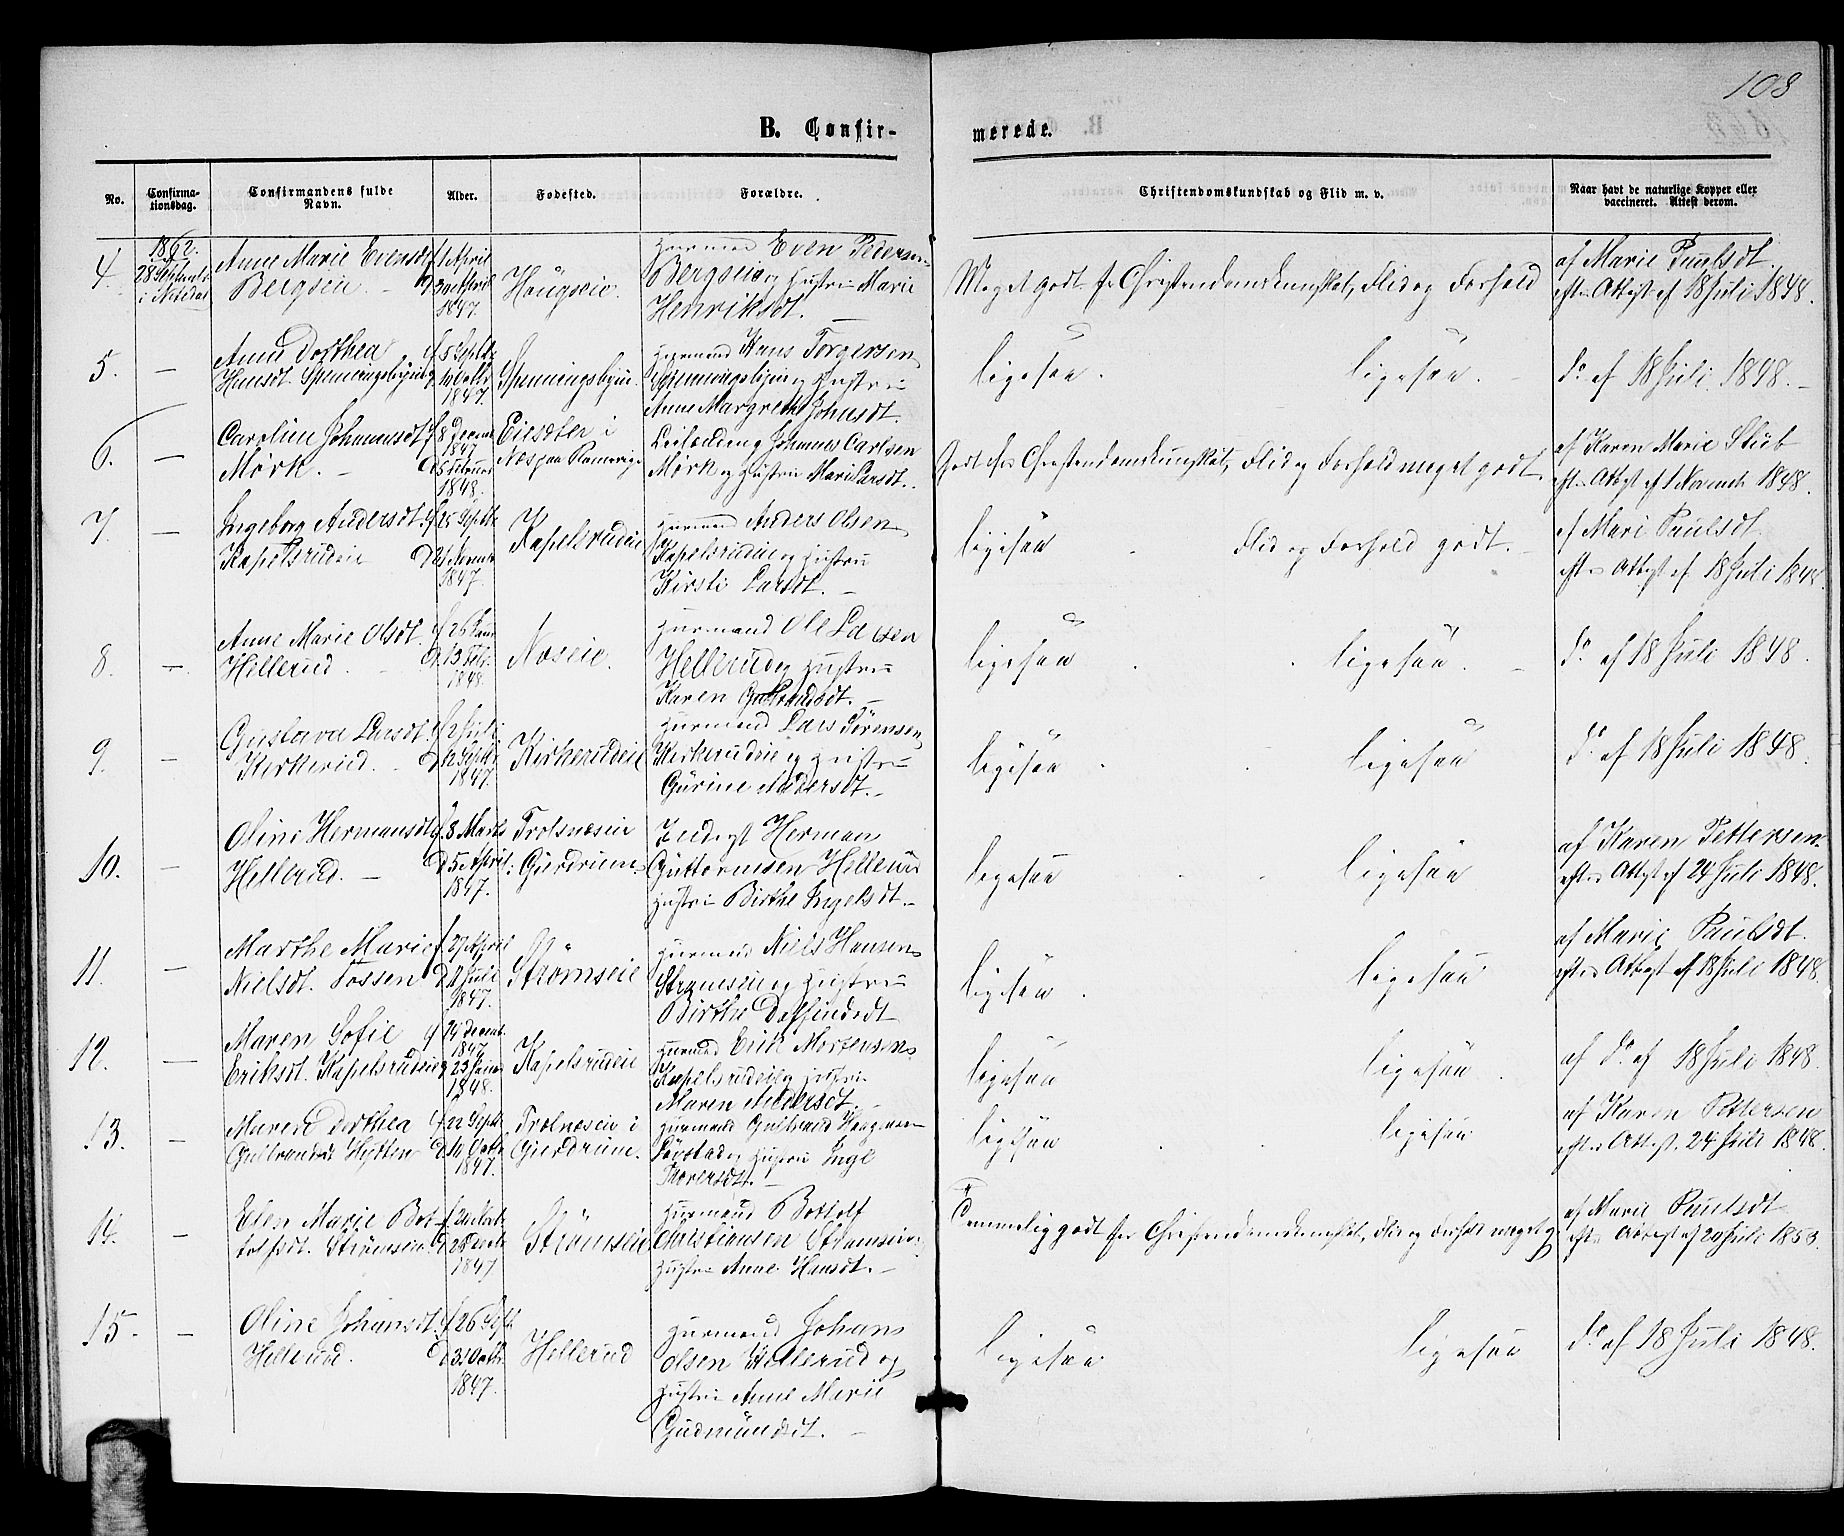 108
B. Confir-
merede.
No.
Confirma-
tionsdag.
Confirmandens fulde
Navn.
Alder.
Fødested.
Forældre.
Christendomskundskab og Flid m. v.
Naar havt de naturlige Kopper eller
vaccineret. Attest derom.
4.
1862.
28 Septembr
i Nesedal
Anne Marie Evensdt
Bergseie. –
f 1 April
d 20 April
1847.
Haugseie.
Huusmand Even Pedersen
Bergseie og Hustru Marie
Henriksdt. –
Meget godt for Christendomskundskab, Flid og Forhold
af Marie Paulsdt.
efter Attest af 18 Juli 1848.
5.
–
Anne Dorthea
Hansdt. Spenningsbyeie
f 5 Septbr
d 10 Octbr
1847.
Spenningsbyeie.
Huusmand Hans Torgersen
Spenningsbyeie og Hustru
Anne Margrethe Johnsdt.
ligesaa.
ligesaa. –
do. af 18 Juli 1848. –
6.
–
Caroline Johannesdt
Mørk. –
f 8 Decem
1847
d 5 Februar
1848.
Eiesdter i
Næs paa Romerige
Leilænding Johannes Carlsen
Mørk og Hustru Mari Larsdt.
Godt for Christendomskundskab, Flid og Forhold meget godt.
af Karen Marie Stub
efter Attest af 1 Novemb 1848.
7.
–
Ingeborg Andersdt.
Kapelsrudeie
f 25 Septbr
1847.
Kapelsrudeie
Huusmand Anders Olsen
Kapelsrudeie og Hustru
Kirsti Larsdt. –
ligesaa
Flid og Forhold godt. –
af Mari Paulsdt.
efter Attest af 18 Juli 1848
8.
–
Anne Marie Olsdt.
Hillerud. –
f 26 Janu
d 13 Feb.
1848.
Noseie.
Huusmand Ole Larsen
Hellerud og Hustru
Karen Gulbrandsdt. –
ligesaa
ligesaa. –
do. af 18 Juli 1848.
9.
–
Gustava Larsdt.
Kirkerud. –
f 2 Juli
d 12 Septbr
1847.
Kirkerudeie
Huusmand Lars Sørensen
Kirkerudeie og Hustru
Gurine Andersdt. –
ligesaa
ligesaa
do. af 18 Juli 1848.
10.
–
Oline Hermansdt
Hellerud. –
f 8 Marts
d 5 April.
1847.
Trolsnæseie
Gjerdrum.
Inderst Herman
Guttormsen Hellerud
Hustru Birthe Ingelsdt. –
ligesaa
ligesaa
af Karen Pettersen
efter Attest af 24 Juli 1848.
11.
–
Marthe Marie
Nielsdt. Fossen
f 27 April
d 4 Juli
1847.
Strømseie
Huusmand Niels Hansen
Strømseie og Hustru
Birthe Dolfindsdt
ligesaa.
ligesaa
af Marie Paulsdt.
efter Attest af 18 Juli 1848.
12.
–
Maren Sofie
Eriksdt. Kapelsrudeie
f 14 Decemb.
1847
d 23 Janu
1848.
Kapelsrudeie
Huusmand Erik Mortensen
Kapelsrudeie og Hustru
Maren Andersdt. –
ligesaa
ligesaa.
af do. af 18 Juli 1848.
13.
–
Maren Dorthea
Gulbrandsd Hytten
f 22 Septbr
d 10 Octbr
1847.
Trolnæseie i
Gjerdrum.
Huusmand Gulbrand Haagensen
og Hustru Inge
Thorersdt. –
ligesaa
ligesaa
af Karen Pettersen
efter Attest. 24 Juli 1848.
14.
–
Elen Marie Bot-
tolfsdt. Strømseie
1847
Strømseie
Huusmand Bottolf
Christiansen Strømseie og
Hustru Anne Hansdt. –
Temmelig godt for Christendomskundskab, Flid og Forhold meget g.
af Marie Paulsdt
efter Attest af 20 Juli 1853.
15.
–
Oline Johansdt.
Hellerud.
f 26 Sept.
d 31 Octbr.
1847.
Hellerud
Huusmand Johans
Olsen Hellerud og
Hustru Anne Marie
Gudmundsdt. –
ligesaa
ligesaa
do. af 18 Juli 1848.